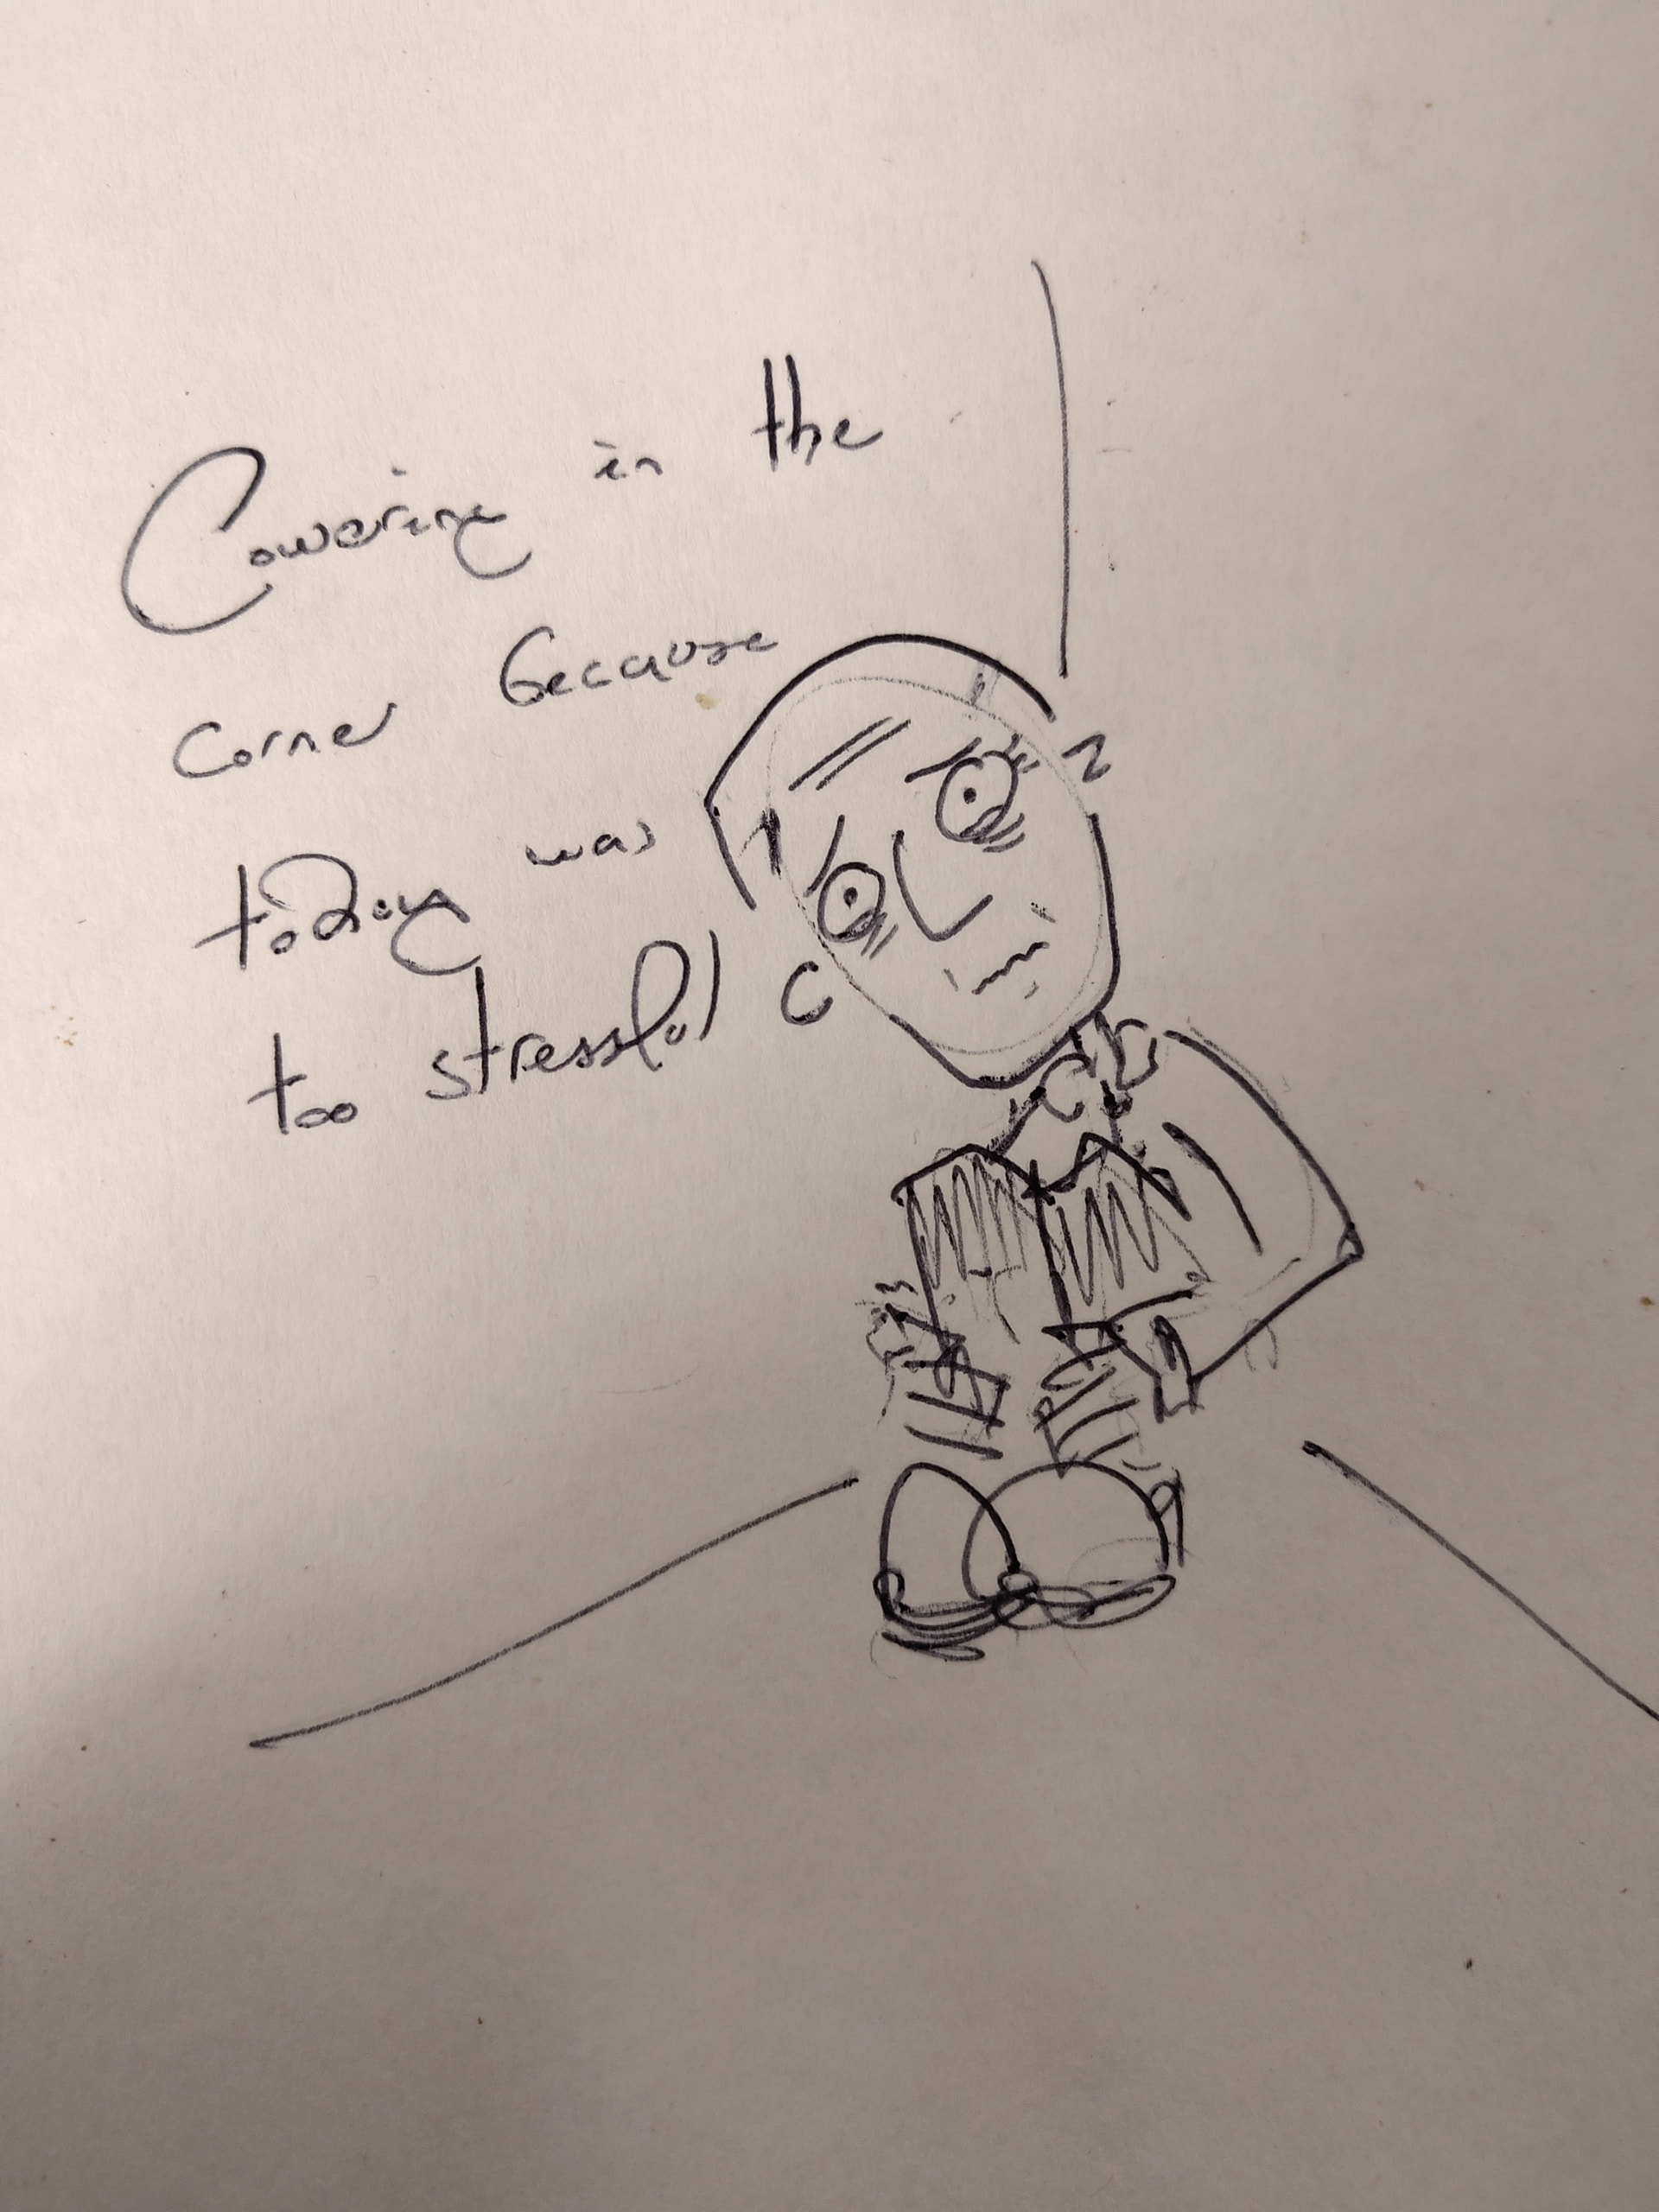 Cowering in the
corner because
today was
too stressful